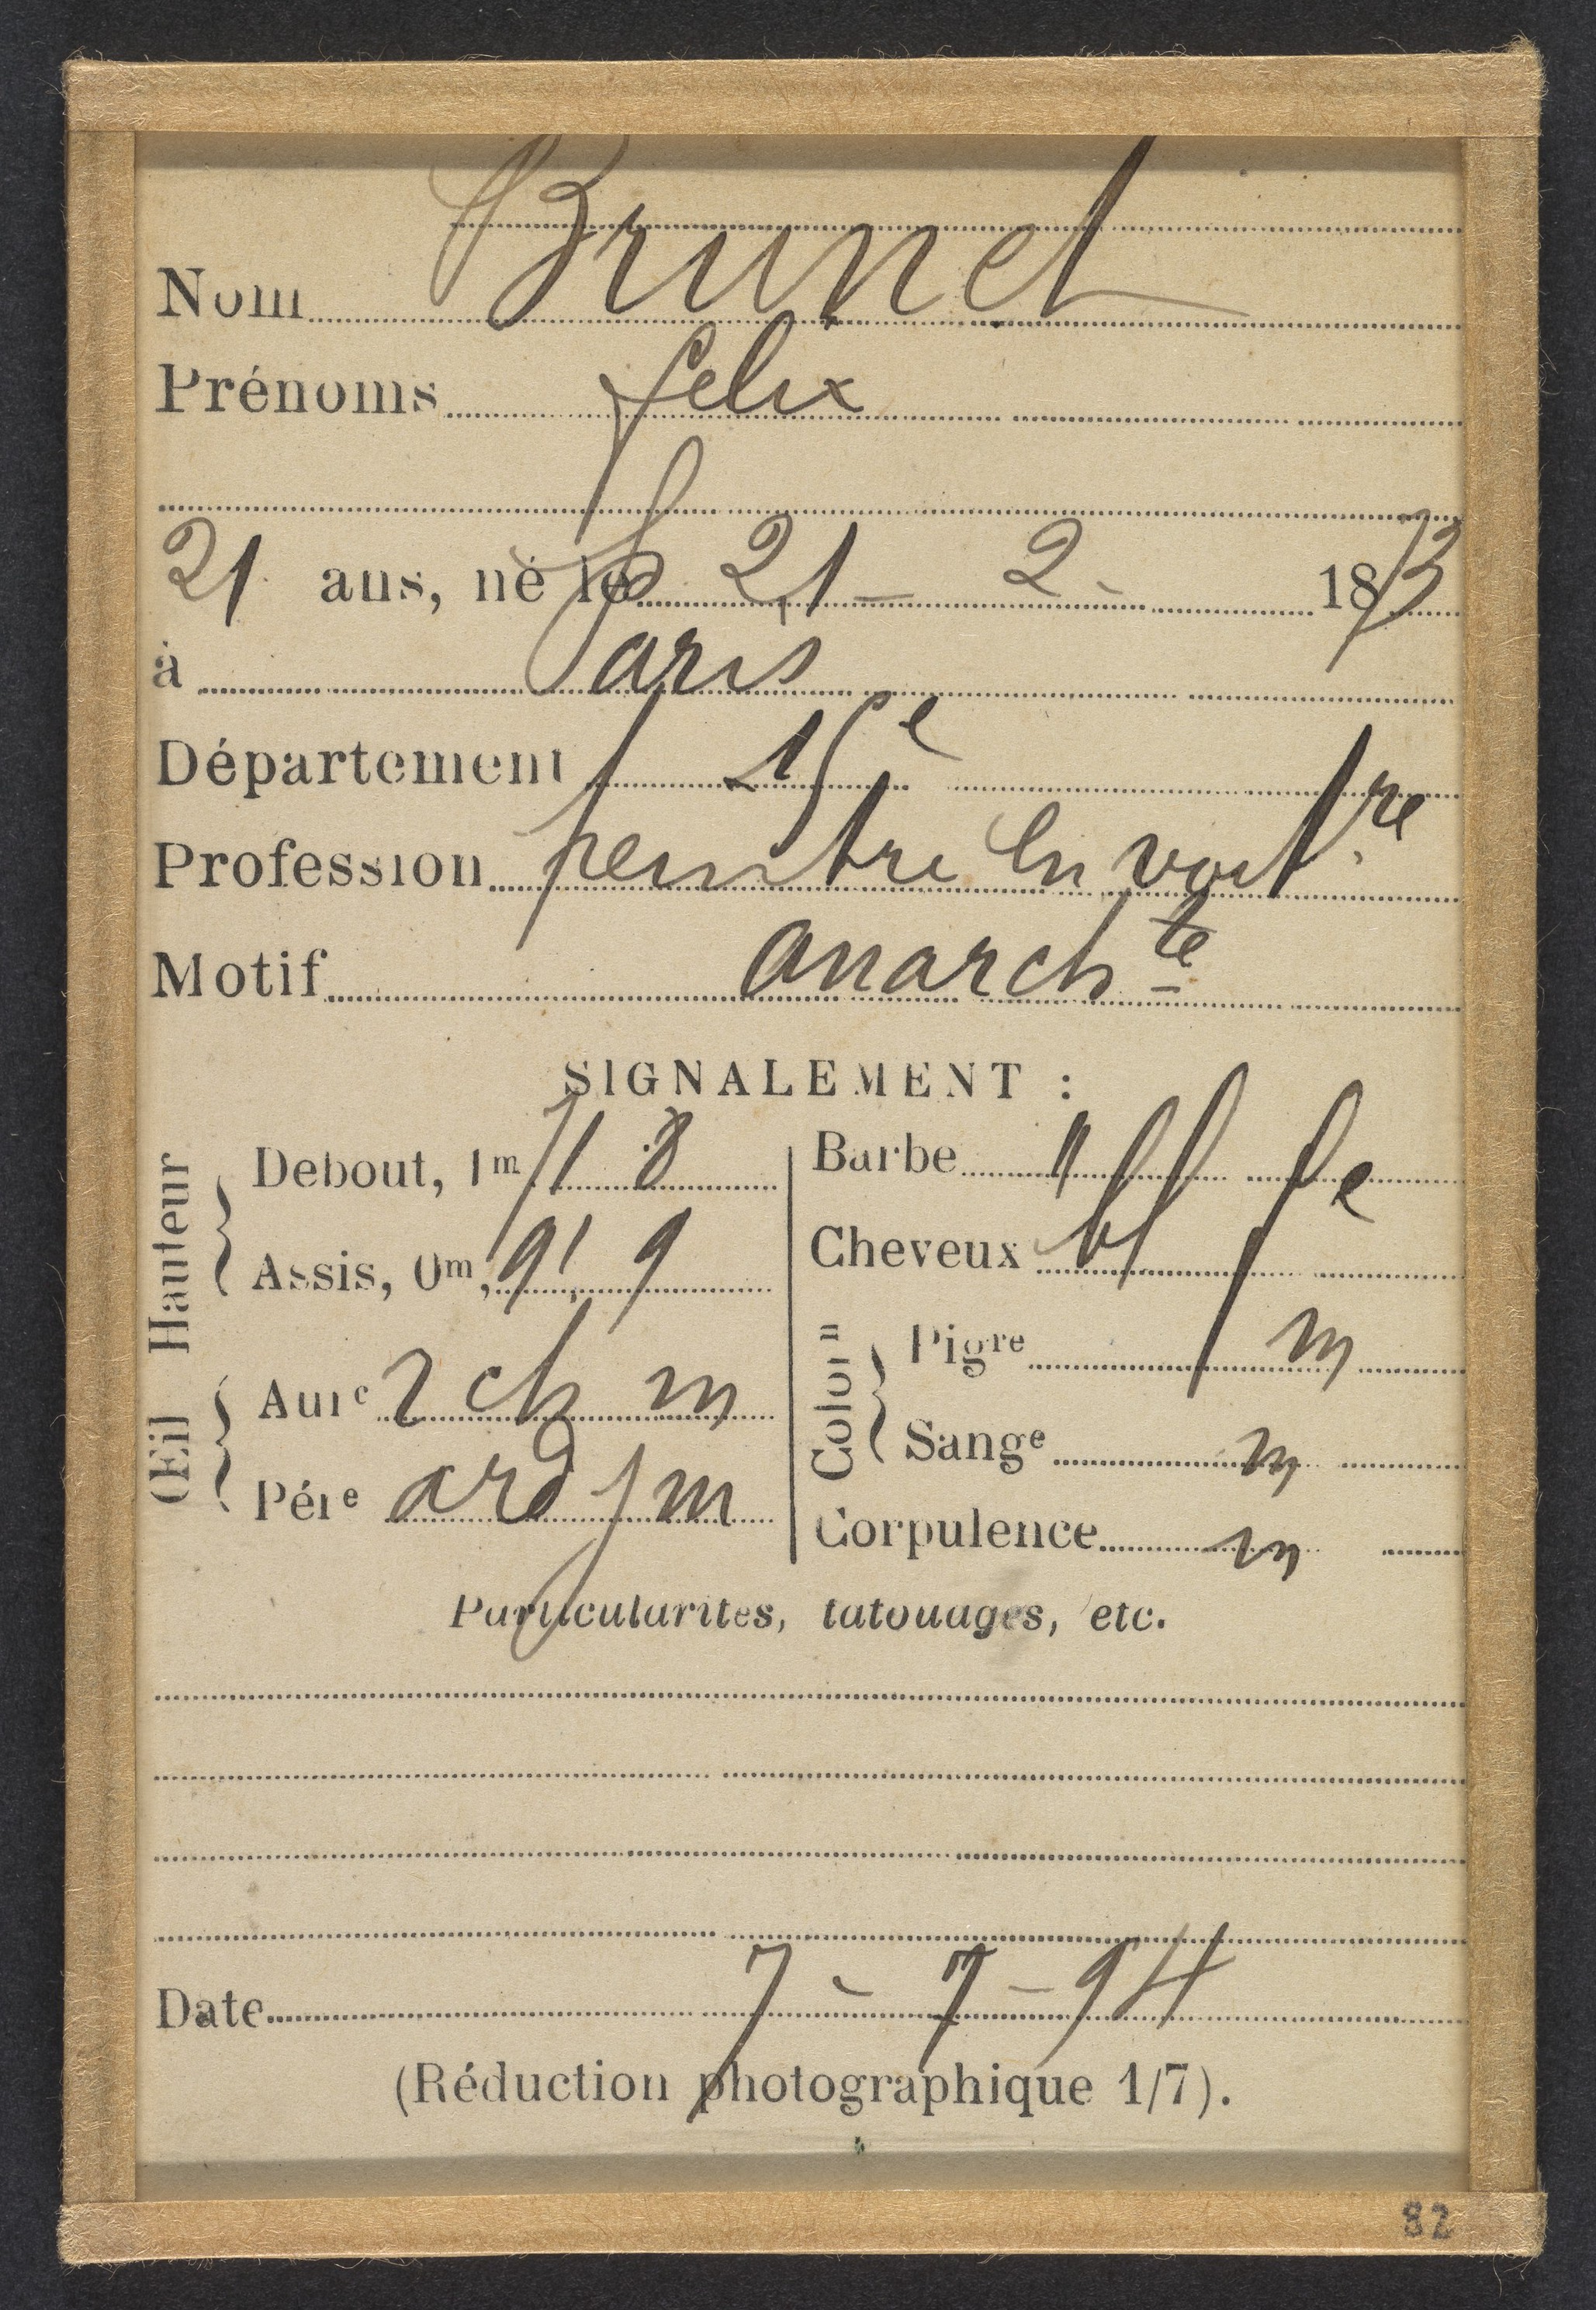 Nom Brunet
Prénoms felix
21 ans, né le 21 - 2 - 1873
à Paris
Département 15e
Profession peintre en voitre
Motif anarchte
SIGNALEMENT :
Hauteur
Debout, 1m 71 8
Assis, 0m, 91, 9
Œil
Aure 2 ch m
Pére ard j m
Barbe
Cheveux bl
Colon
Pigre m
Sange m
Corpulence m
Particularités, tatouages, etc.
Date 7 - 7 - 94
(Réduction photographique 1/7).
82